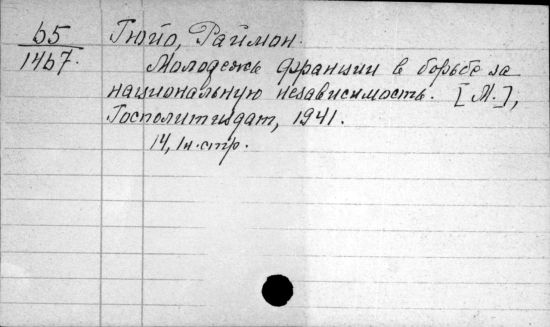 65 Гюйо, Раймон.
1467. Молодежь Франции в борьбе за
национальную независимость. [М.],
Госполитиздат, 1941.
14, 1н. стр.